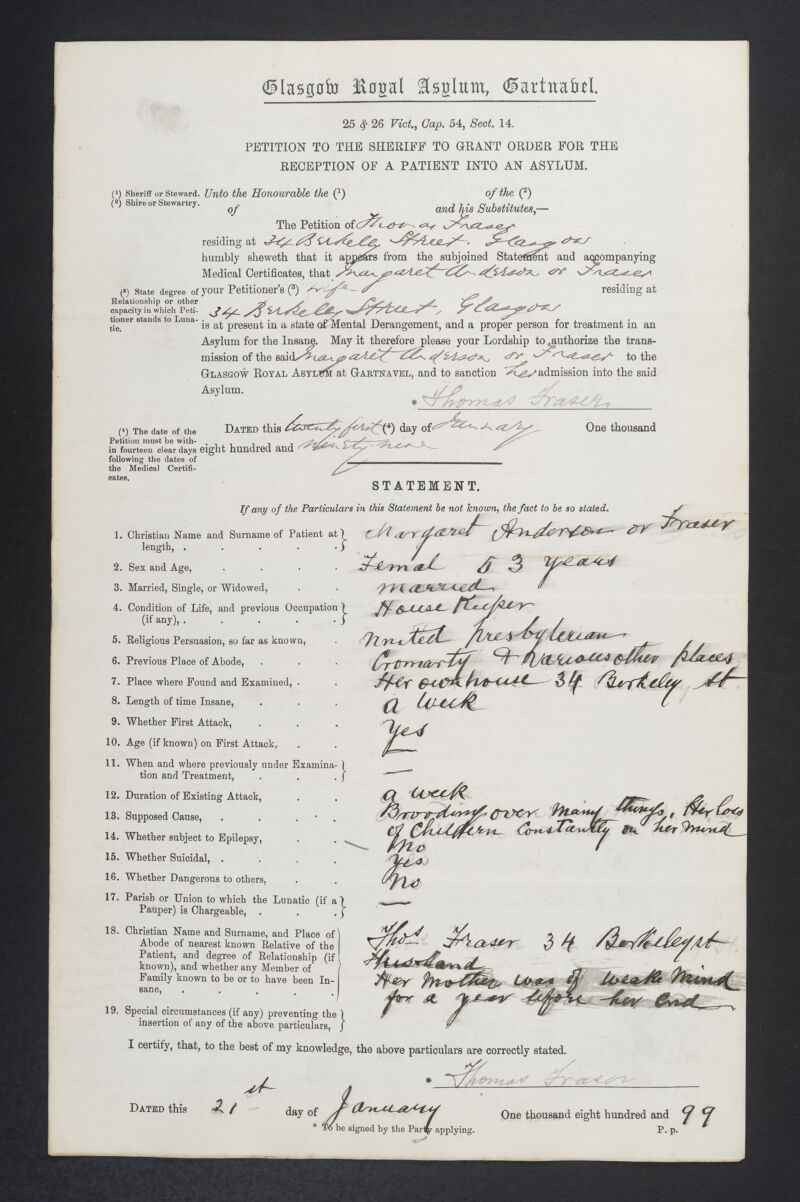 Glasgow Royal Asylum, Gartnavel.
25 & 26 Vict., Cap. 54, Sect. 14.
PETITION TO THE SHERIFF TO GRANT ORDER FOR THE
RECEPTION OF A PATIENT INTO AN ASYLUM.
(¹) Sheriff or Steward.
(²) Shire or Stewartry.
Unto the Honourable the (¹) of the (²)
of and his Substitutes,—
The Petition of Thomas Fraser
residing at 34 Berkeley Street. Glasgow
humbly sheweth that it appears from the subjoined Statement and accompanying
Medical Certificates, that Margaret Anderson or Fraser
(³) State degree of
Relationship or other
capacity in which Peti-
tioner stands to Luna-
tic.
your Petitioner's (³) wife residing at
34 Berkeley Street, Glasgow
is at present in a state of Mental Derangement, and a proper person for treatment in an
Asylum for the Insane. May it therefore please your Lordship to authorize the trans-
mission of the said Margaret Anderson or Fraser to the
GLASGOW ROYAL ASYLUM at GARTNAVEL, and to sanction her admission into the said
Asylum.
* Thomas Fraser
(⁴) The date of the
Petition must be with-
in fourteen clear days
following the dates of
the Medical Certifi-
cates.
DATED this twenty first (⁴) day of January One thousand
eight hundred and ninety nine
STATEMENT.
If any of the Particulars in this Statement be not known, the fact to be so stated.
1. Christian Name and Surname of Patient at
length, . . . . . Margaret Anderson or Fraser
2. Sex and Age, . . . . Femal 53 years
3. Married, Single, or Widowed, . . married
4. Condition of Life, and previous Occupation
(if any), . . . . . House Keeper
5. Religious Persuasion, so far as known, . United presbyterian
6. Previous Place of Abode, . . . Cromarty & various other places
7. Place where Found and Examined, . . Her own house 34 Berkeley St
8. Length of time Insane, . . . a week
9. Whether First Attack, . . . Yes
10. Age (if known) on First Attack, . . —
11. When and where previously under Examina-
tion and Treatment, . . . —
12. Duration of Existing Attack, . . a week
13. Supposed Cause, . . . . Brooding over many things. Her loss
of Children Constantly on her mind
14. Whether subject to Epilepsy, . . No
15. Whether Suicidal, . . . . Yes
16. Whether Dangerous to others, . . No
17. Parish or Union to which the Lunatic (if a
Pauper) is Chargeable, . . . —
18. Christian Name and Surname, and Place of
Abode of nearest known Relative of the
Patient, and degree of Relationship (if
known), and whether any Member of
Family known to be or to have been In-
sane, . . . . . .
Thos Fraser 34 Berkeley st
Husband
Her Mother was of weake mind
for a year before her end
19. Special circumstances (if any) preventing the
insertion of any of the above particulars,
I certify, that, to the best of my knowledge, the above particulars are correctly stated.
* Thomas Fraser
DATED this 21st day of January One thousand eight hundred and 99
* To be signed by the Party applying.
P. p.